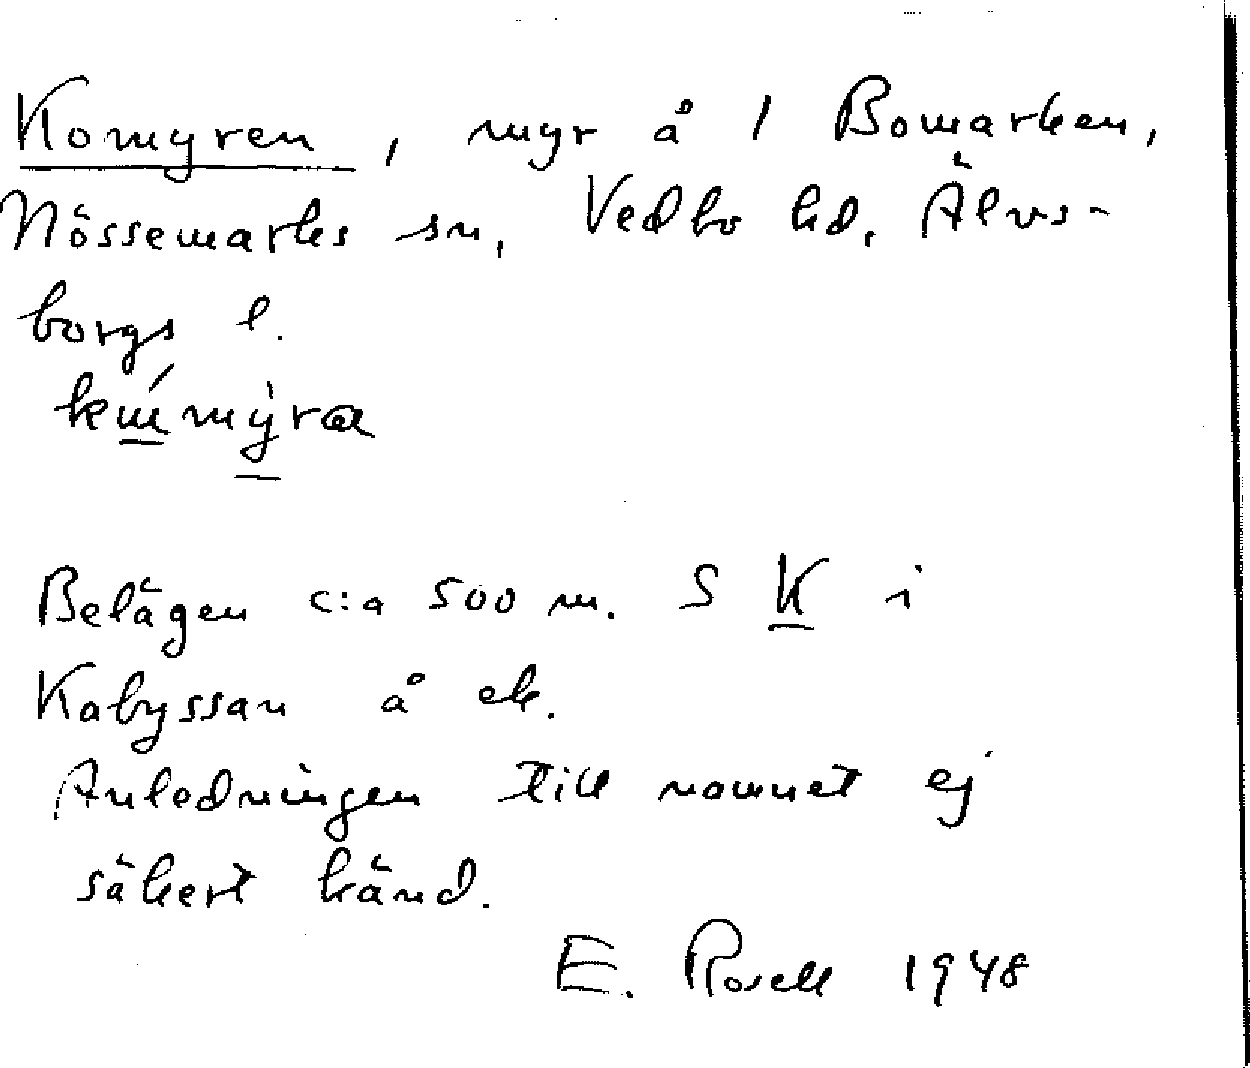 Komyren, myr å 1 Bomarken,
Nössemarks sn, Vedbo hd. Älvs-
borgs l.
Belägen c:a 500 m. S K i
Kabyssan å ek.
Anledningen till namnet ej
säkert känd.
E. Rosell 1948